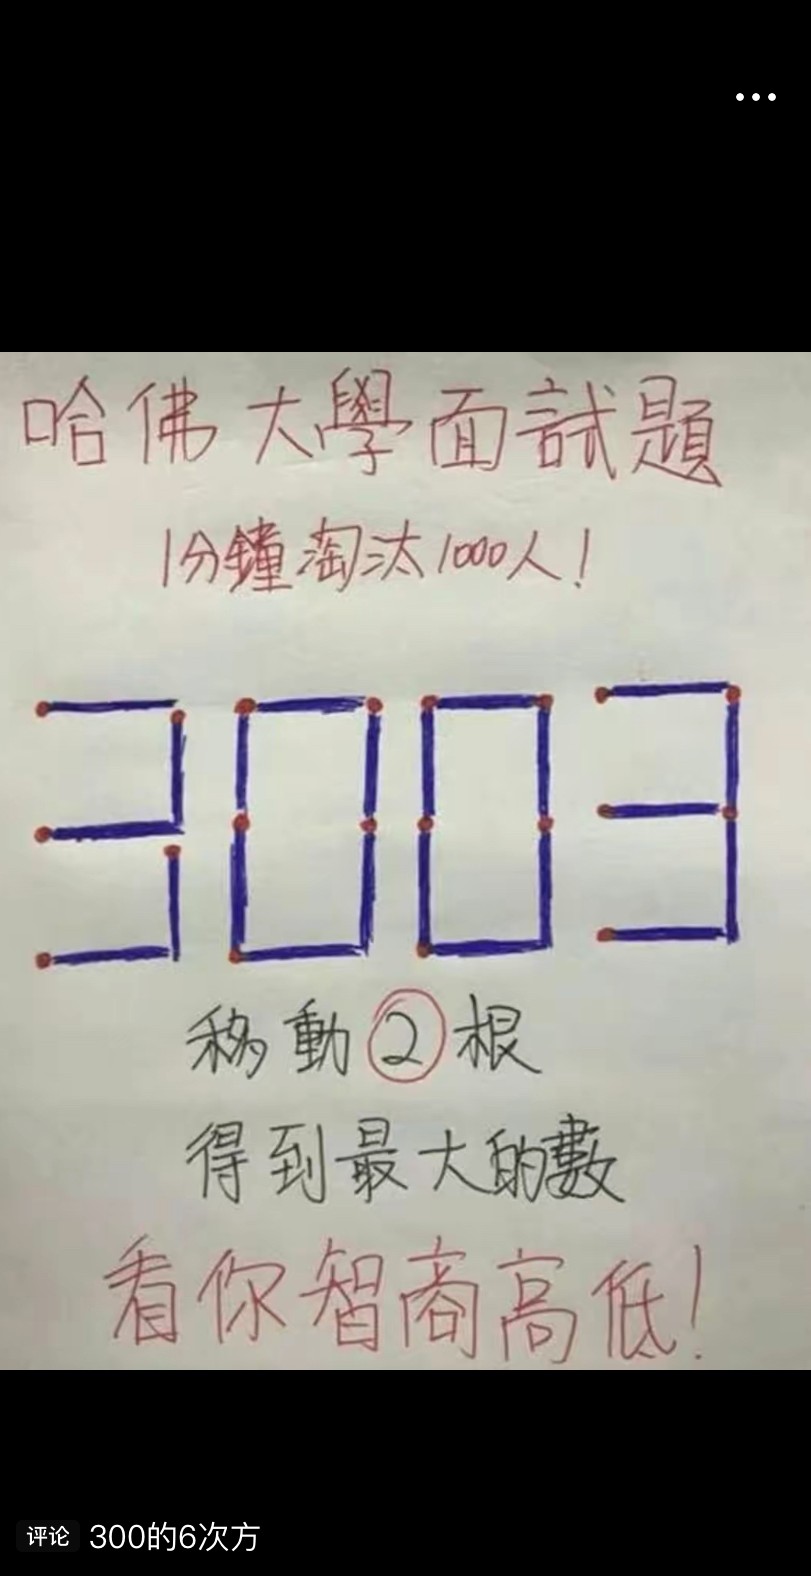 哈佛大學面試題
1分鐘淘汰1000人!
3003
移動②根
得到最大的數
看你智商高低!
评论 300的6次方